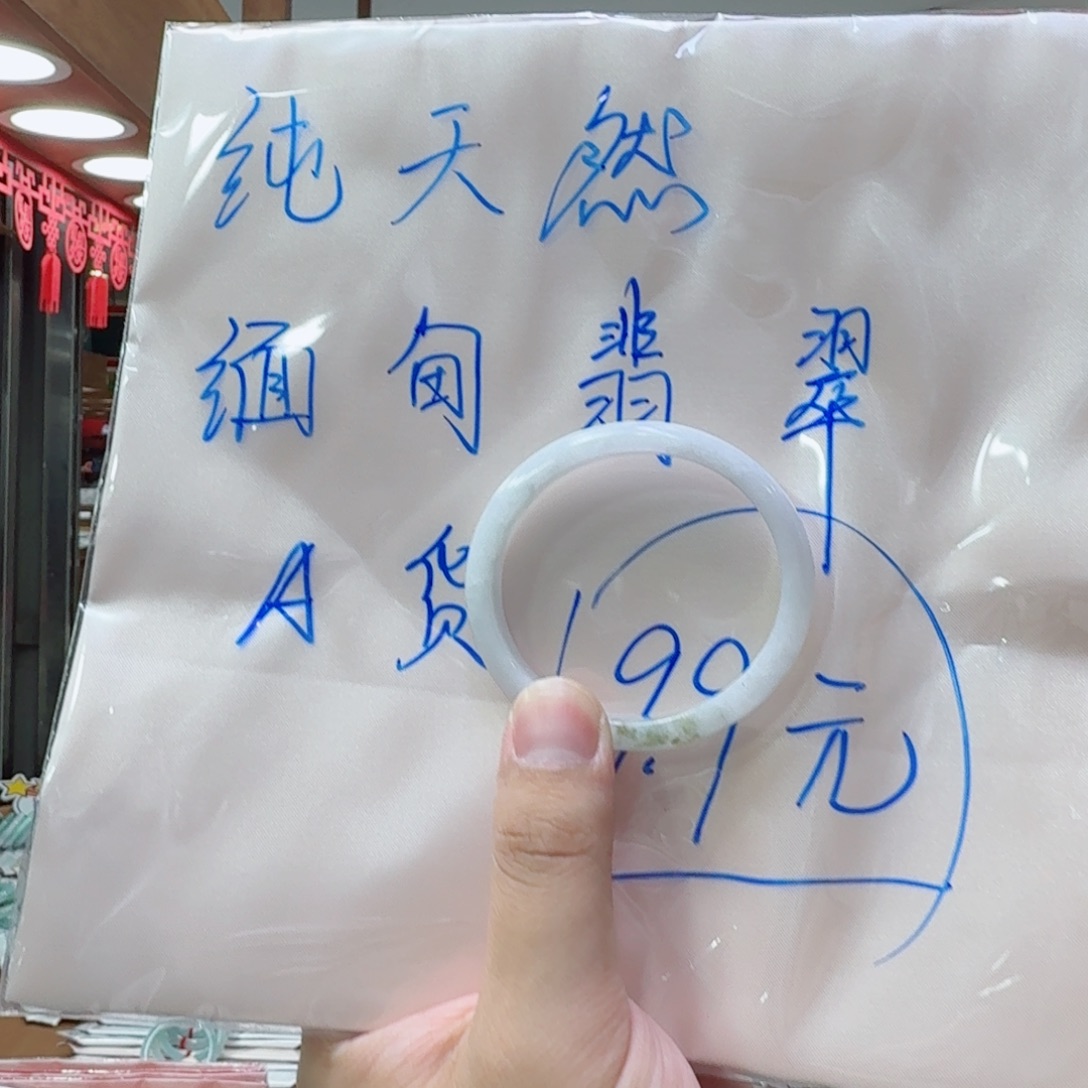 纯天然
缅甸翡翠
A货 19.9元